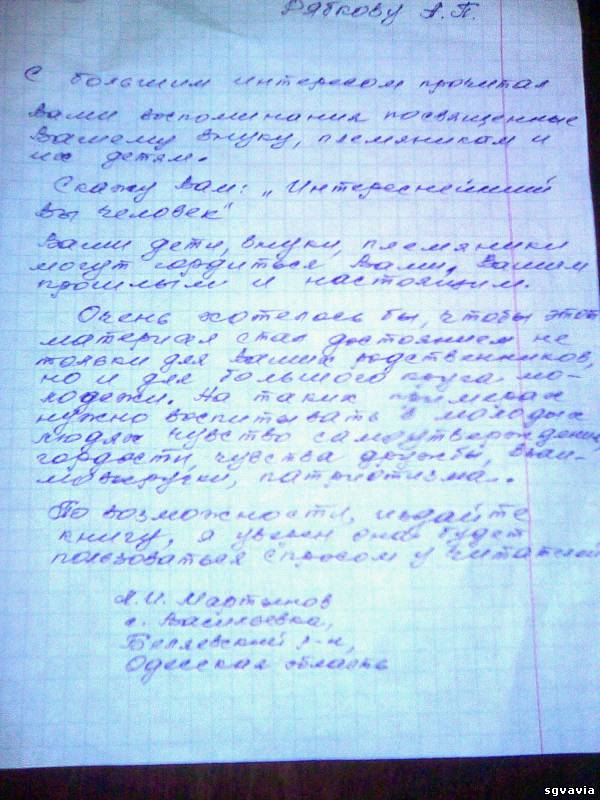 Рябкову А.П.
С большим интересом прочитал
Вами воспоминания посвященные
Вашему внуку, племянникам и
их детям.
Скажу Вам: „Интереснейший
Вы человек"
Ваши дети, внуки, племянники
могут гордиться Вами, Вашим
прошлым и настоящим.
Очень хотелось бы, чтобы этот
материал стал достоянием не
только для Ваших родственников,
но и для большого круга мо-
лодежи. На таких примерах
нужно воспитывать в молодых
людях чувство самоутверждения,
гордости, чувства дружбы, взаи-
мовыручки, патриотизма.
По возможности, издайте
книгу, я уверен она будет
пользоваться спросом у читателей
А.И. Мартынов
с. Васильевка,
Беляевский р-н,
Одесская область
sgvavia